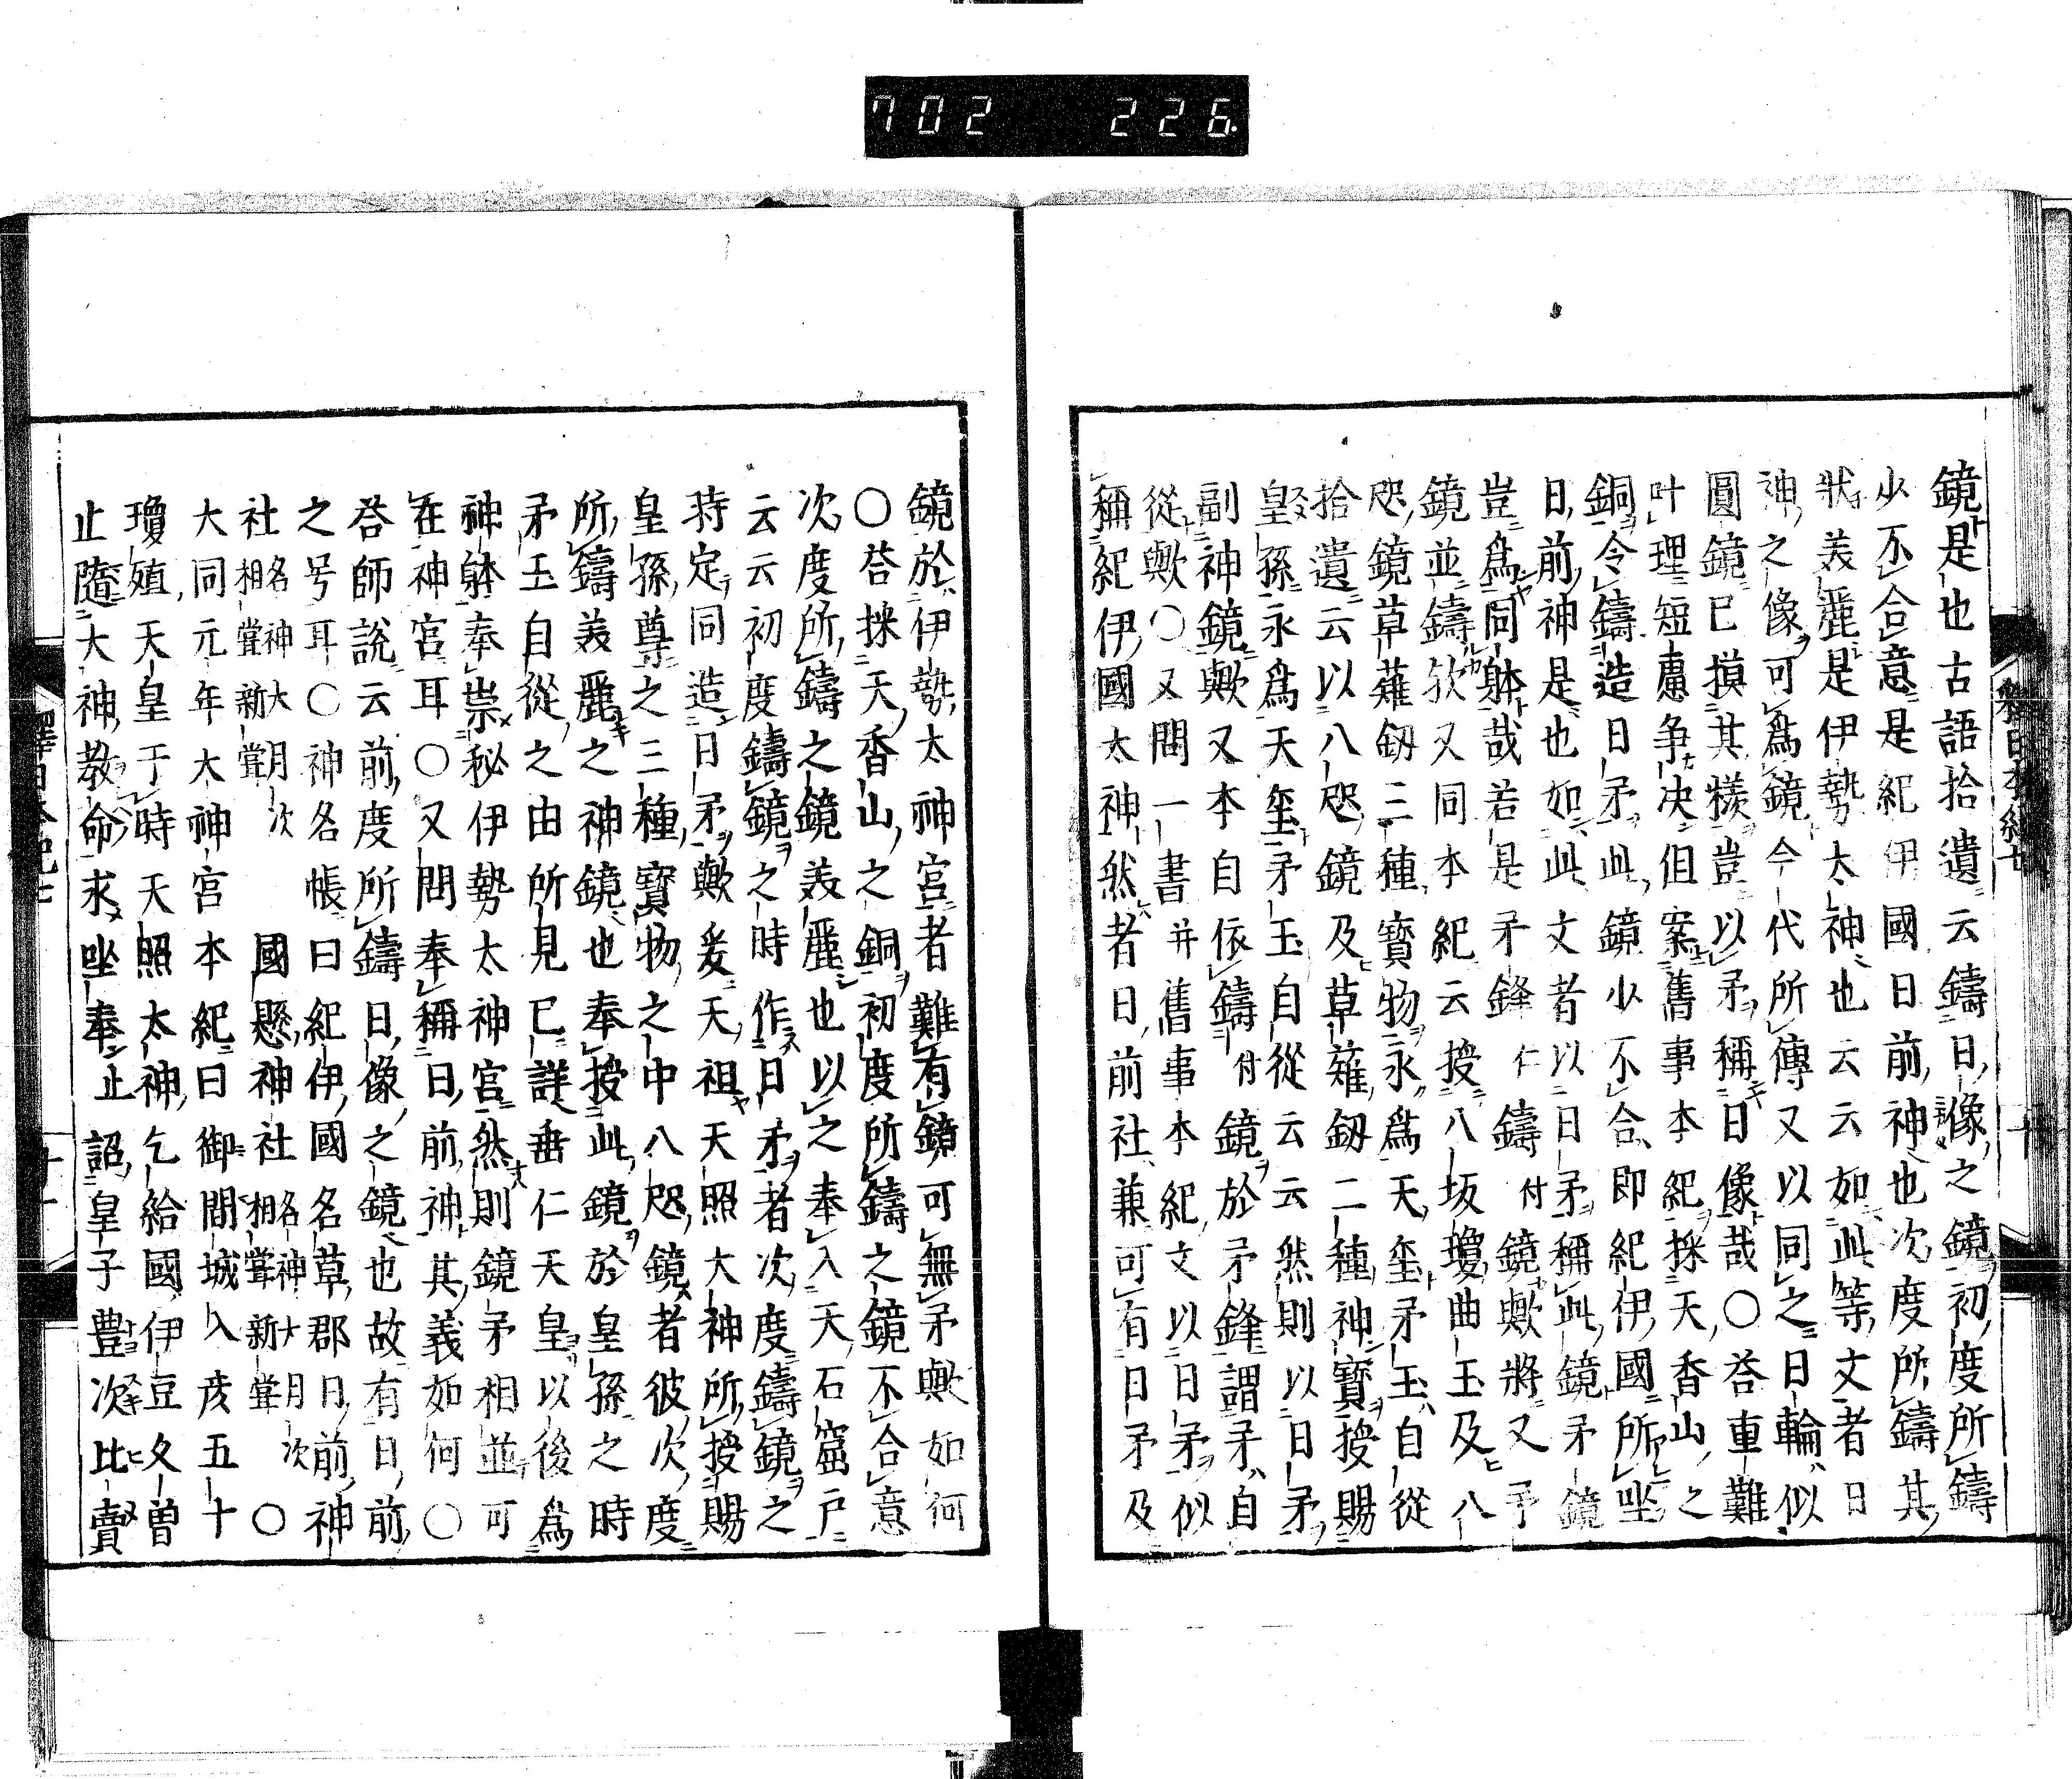 702 226
鏡是也古語拾遺云鑄日像之鏡初度所鑄
少不合意是紀伊國日前神也次度所鑄其
狀美麗是伊勢太神也云云如此等文者日
神之像可爲鏡今代所傳又以同之日輪似
圓鏡已摸其樣豈以矛稱日像哉○荅重難
叶理短慮爭决但案舊事本紀採天香山之
銅令鑄造日矛此鏡少不合即紀伊國所坐
日前神是也如此文者以日矛稱此鏡矛鏡
豈爲同躰哉若是矛鋒仁鑄付鏡歟將又予
鏡並鑄欤又同本紀云授八坂瓊曲玉及八
咫鏡草薙釼三種寳物永爲天璽矛玉自從
拾遺云以八咫鏡及草薙釼二種神寳授賜
皇孫永爲天璽矛玉自從云云然則以日矛
副神鏡歟又本自依鑄付鏡於矛鋒謂矛自
從歟○又問一書并舊事本紀文以日矛似
稱紀伊國太神然者日前社兼可有日矛及
鏡於伊勢太神宮者難有鏡可無矛歟如何
○荅採天香山之銅初度所鑄之鏡不合意
次度所鑄之鏡美麗也以之奉入天石窟戸
云云初度鑄鏡之時作日矛者次度鑄鏡之
時定同造日矛歟爰天祖天照大神所授賜
皇孫尊之三種寳物之中八咫鏡者彼次度
所鑄美麗之神鏡也奉授此鏡於皇孫之時
矛玉自從之由所見已詳垂仁天皇以後爲
神躰奉崇秘伊勢太神宮然則鏡矛相並可
在神宮耳○又問奉稱日前神其義如何○
荅師說云前度所鑄日像之鏡也故有日前
之号耳○神名帳曰紀伊國名草郡日前神
社名神大月次相甞新甞國懸神社名神大月次相甞新甞○
大同元年大神宮本紀曰御間城入彦五十
瓊殖天皇于時天照太神乞給國伊豆久曽
止隨大神教命求坐奉止詔皇子豊次比賣
釋日本紀七
十一